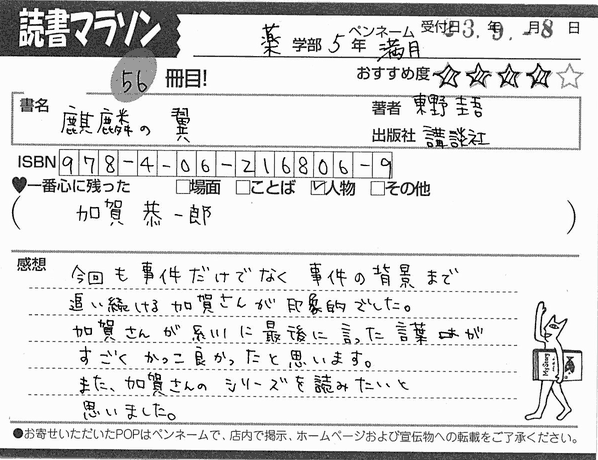 読書マラソン
薬 学部 5 年 ペンネーム 満月
受付日 -3.9.-8 年 月 日
56 冊目!
おすすめ度 ★★★★☆
書名 麒麟の翼
著者 東野圭吾
出版社 講談社
ISBN 978-4-06-216806-9
♥一番心に残った □場面 □ことば ☑人物 □その他
( 加賀 恭一郎 )
感想
今回も事件だけでなく 事件の背景まで
追い続ける加賀さんが印象的でした。
加賀さんが糸川に最後に言った言葉が
すごくかっこ良かったと思います。
また、加賀さんのシリーズを読みたいと
思いました。
●お寄せいただいたPOPはペンネームで、店内で掲示、ホームページおよび宣伝物への転載をご了承ください。